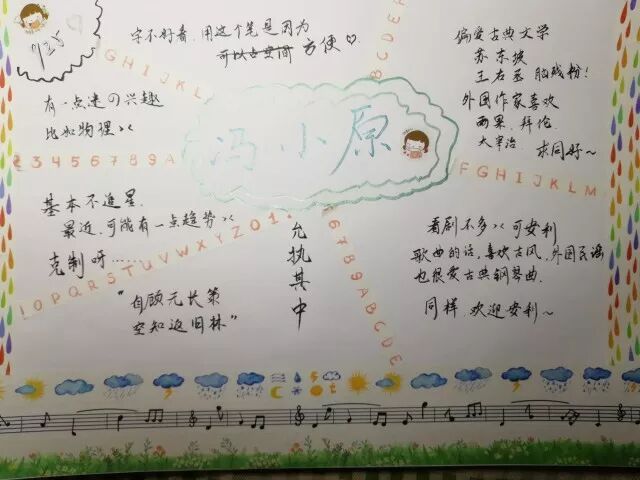 字不好看,用这个笔是因为
可以去空间 方便♡
偏爱古典文学
苏东坡
王右丞 脑残粉!
外国作家喜欢
雨果、拜伦、
太宰治. 求同好~
有一点迷の兴趣
比如物理××
冯小原
GHIJKL
ABCDE
23456789A
FGHIJKLM
基本不追星.
最近,可能有一点趋势××
克制呀……
"自顾无长策
空知返旧林"
允执其中
OPQRSTUVWXYZ01
6789ABCDE
看剧不多××可安利
歌曲的话,喜欢古风,外国民谣
也很爱古典钢琴曲.
同样,欢迎安利~